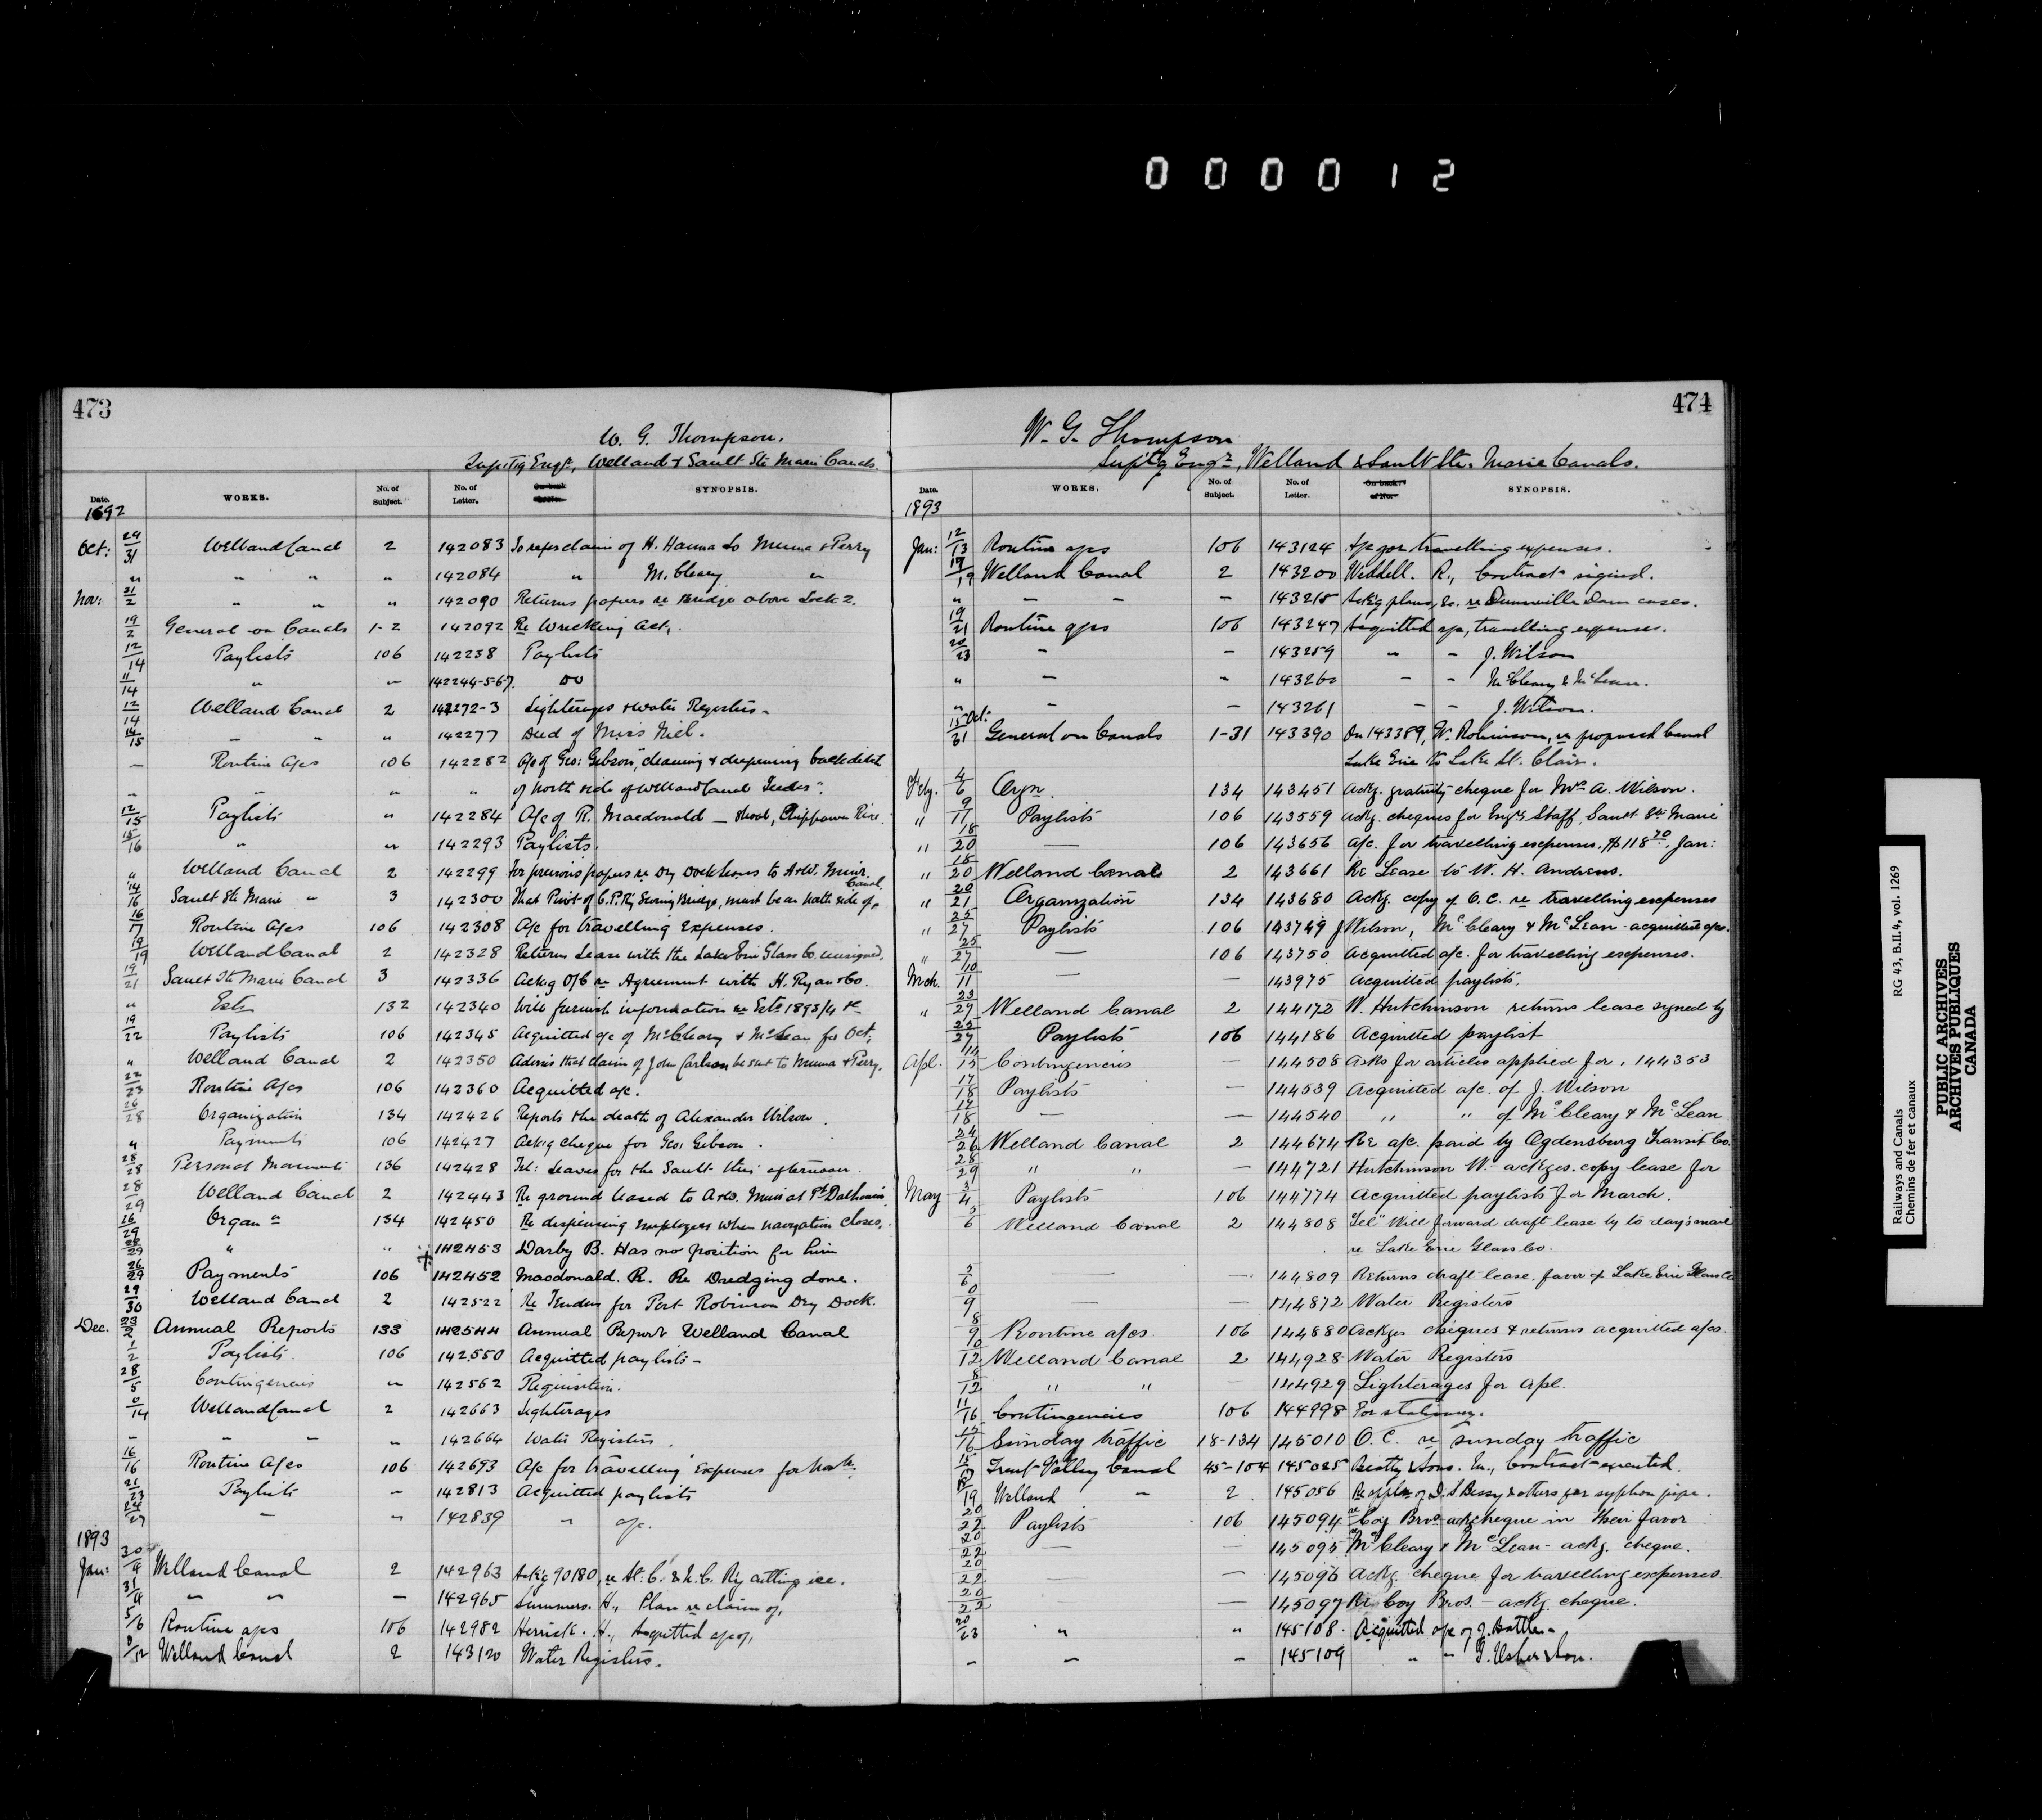 000012
473
W. G. Thompson.
Suptg Engr, Welland & Sault Ste Marie Canals.
Date. WORKS. No. of Subject. No. of Letter. SYNOPSIS.
1892
Oct: 29/31 Welland Canal 2 142083 To refer claim of H. Hanna to Munna & Perry
" " " " 142084 " M. Cleary "
Nov: 31/2 " " " 142090 Returns papers re Bridge above Lock 2.
19/2 General on Canals 1-2 142092 Re Wrecking Act.
12/14 Paylists 106 142238 Paylists
11/14 " " 142244-5-6-7. Do
12/14 Welland Canal 2 142272-3 Lighterages & Water Registers -
14/15 " " " 142277 Deed of Miss Niel.
— Routine A/cs 106 142282 A/c of Geo: Gibson, cleaning & deepening back ditch
" " " " of north side of Welland Canal Feeder".
12/15 Paylists " 142284 A/c of R. Macdonald — , Chippawa River.
15/16 " " 142293 Paylists.
" Welland Canal 2 142299 For previous papers re Dry Dock leases to A & W. Muir.
14/16 Sault Ste Marie " 3 142300 That Pivot of C.P. Ry Swing Bridge, must be on north side of Canal
16/17 Routine A/cs 106 142308 A/c for travelling Expenses.
19/19 Welland Canal 2 142328 Returns Lease with the Lake Erie Glass Co. unsigned.
19/21 Sault Ste Marie Canal 3 142336 Ackg O/C re Agreement with H. Ryan & Co.
" Ests 132 142340 Will furnish information re Ests 1893/4 &c
19/22 Paylists 106 142345 Acquitted a/c of McCleary & McLean for Oct.
" Welland Canal 2 142350 Advises that claim of John Carlson be sent to Munna & Perry.
22/23 Routine A/cs 106 142360 Acquitted a/c.
26/28 Organization 134 142426 Reports the death of Alexander Wilson.
" Payments 106 142427 Ackg cheque for Geo: Gibson.
28/28 Personal Movements 136 142428 Tel: Leaves for the Sault this afternoon.
28/29 Welland Canal 2 142443 Re ground leased to A & W. Muir at Pt Dalhousie
26/29 Organ " 134 142450 Re dispensing employees when navigation closes.
28/29 " " 142453 Darby B. Has no position for him
26/29 Payments 106 142452 Macdonald. R. Re Dredging done.
29/30 Welland Canal 2 142522 Re Tenders for Port Robinson Dry Dock.
Dec. 23/2 Annual Reports 133 142544 Annual Report Welland Canal
1/2 Paylists. 106 142550 Acquitted paylists -
28/5 Contingencies " 142562 Requisition.
/14 Welland Canal 2 142663 Lighterages
" " " " 142664 Water Registers.
16/16 Routine A/cs 106 142693 A/c for travelling Expenses for
21/23 Paylists " 142813 Acquitted paylists
24/27 " " 142839 " a/c.
1893
Jan: 30/4 Welland Canal 2 142963 Ackg 90180, re St. C. & N. C. Ry cutting ice.
31/4 " " — 142965 Summers. H., Plan re claim of,
5/6 Routine a/cs 106 142982 Herrick. H., Acquitted a/c of,
/12 Welland Canal 2 143120 Water Registers.
474
W. G. Thompson
Suptg Engr, Welland & Sault Ste. Marie Canals.
Date. WORKS. No. of Subject. No. of Letter. SYNOPSIS.
1893
Jan: 12/13 Routine a/cs 106 143124 A/c for travelling expenses.
/19 Welland Canal 2 143200 Weddell. R., Contract signed.
" — — — 143215 Ackg plans, &c. re Dunnville Dam cases.
19/21 Routine a/cs 106 143247 Acquitted a/c, travelling expenses.
20/23 — — 143259 " — J. Wilson
" — " 143260 — — McCleary & McLean.
" — — 143261 — — J. Wilson.
15 Oct./31 General on Canals 1-31 143390 On 143389, W. Robinson, re proposed Canal
Lake Erie to Lake St. Clair.
Feby. 4/6 Orgn. 134 143451 Ackg. gratuity cheque for Mrs A. Wilson.
" 9/11 Paylists 106 143559 Ackg. cheques for Engrs Staff, Sault Ste Marie
" 18/20 — 106 143656 A/c. for travelling expenses, $118 70. Jan:
" 18/20 Welland Canal 2 143661 Re Lease to W. H. Andrews.
" 20/21 Organization 134 143680 Ackg. copy of O.C. re travelling expenses
" 25/27 Paylists 106 143749 J Wilson, McCleary & McLean - acquitted a/cs.
" 25/27 — 106 143750 Acquitted a/c. for travelling expenses.
Mch. 10/11 — — 143975 Acquitted paylists.
" 23/27 Welland Canal 2 144172 W. Hutchinson returns lease signed by
25/27 Paylists 106 144186 Acquitted paylist
Apl. 14/15 Contingencies — 144508 Asks for articles applied for. 144353
17/18 Paylists — 144539 Acquitted a/c. of J. Wilson
17/18 — — 144540 " " of McCleary & McLean
24/26 Welland Canal 2 144674 Re a/c. paid by Ogdensburg Transit Co.
28/29 " " — 144721 Hutchinson W. - ackges. copy lease for
May 3/4 Paylists 106 144774 Acquitted paylists for March.
5/6 Welland Canal 2 144808 Tel" Will forward draft lease by to day's mail
re Lake Erie Glass Co.
5/6 — — 144809 Returns draft lease favor of Lake Erie Glass Co
/9 — — 144872 Water Registers
8/9 Routine a/cs. 106 144880 Ackges cheques & returns acquitted a/cs.
10/12 Welland Canal 2 144928 Water Registers
8/12 " " — 144929 Lighterages for Apl.
11/16 Contingencies 106 144998 For stationery.
15/16 Sunday traffic 18-134 145010 O.C. re Sunday traffic
15/17 Trent Valley Canal 45-104 145025 Beatty & Sons. M., Contract executed.
18/19 Welland — 2 145056 Re appln of D. S Bessy & others for syphon pipe.
20/22 Paylists 106 145094 re Coy Bros - ack cheque in their favor
20/22 — — 145095 re McCleary & McLean - ackg. cheque.
20/22 — — 145096 Ackg. cheque for travelling expenses.
20/22 — — 145097 Re Coy Bros. - ackg. cheque.
20/23 " " 145108. Acquitted a/c of J. Battle -
— — — 145109 " " G. Usher & Son.
Railways and Canals RG 43, B.II.4, vol. 1269
Chemins de fer et canaux
PUBLIC ARCHIVES
ARCHIVES PUBLIQUES
CANADA